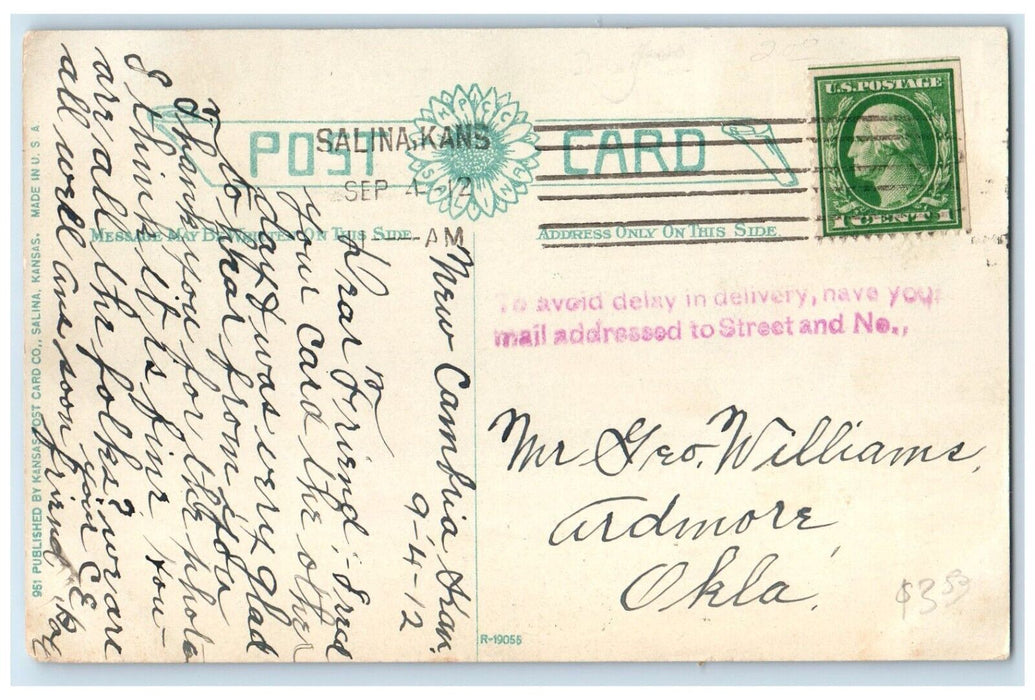 U.S. POSTAGE
POST CARD
SALINA, KANS
SEP 4 - 12
- AM
MESSAGE MAY BE WRITTEN ON THIS SIDE
ADDRESS ONLY ON THIS SIDE
To avoid delay in delivery, have your
mail addressed to Street and No.,
Mr Geo. Williams,
Ardmore,
Okla.
$3.53
R-19055
951 PUBLISHED BY KANSAS POST CARD CO., SALINA, KANSAS. MADE IN U.S.A
New Cambria Kan.
9-4-12
Dear Friend:- Recd
your card the other
day & was very glad
to hear from you
Thank you for the photo
I think it is fine how
are all the folks? we are
all well ans, soon your friend